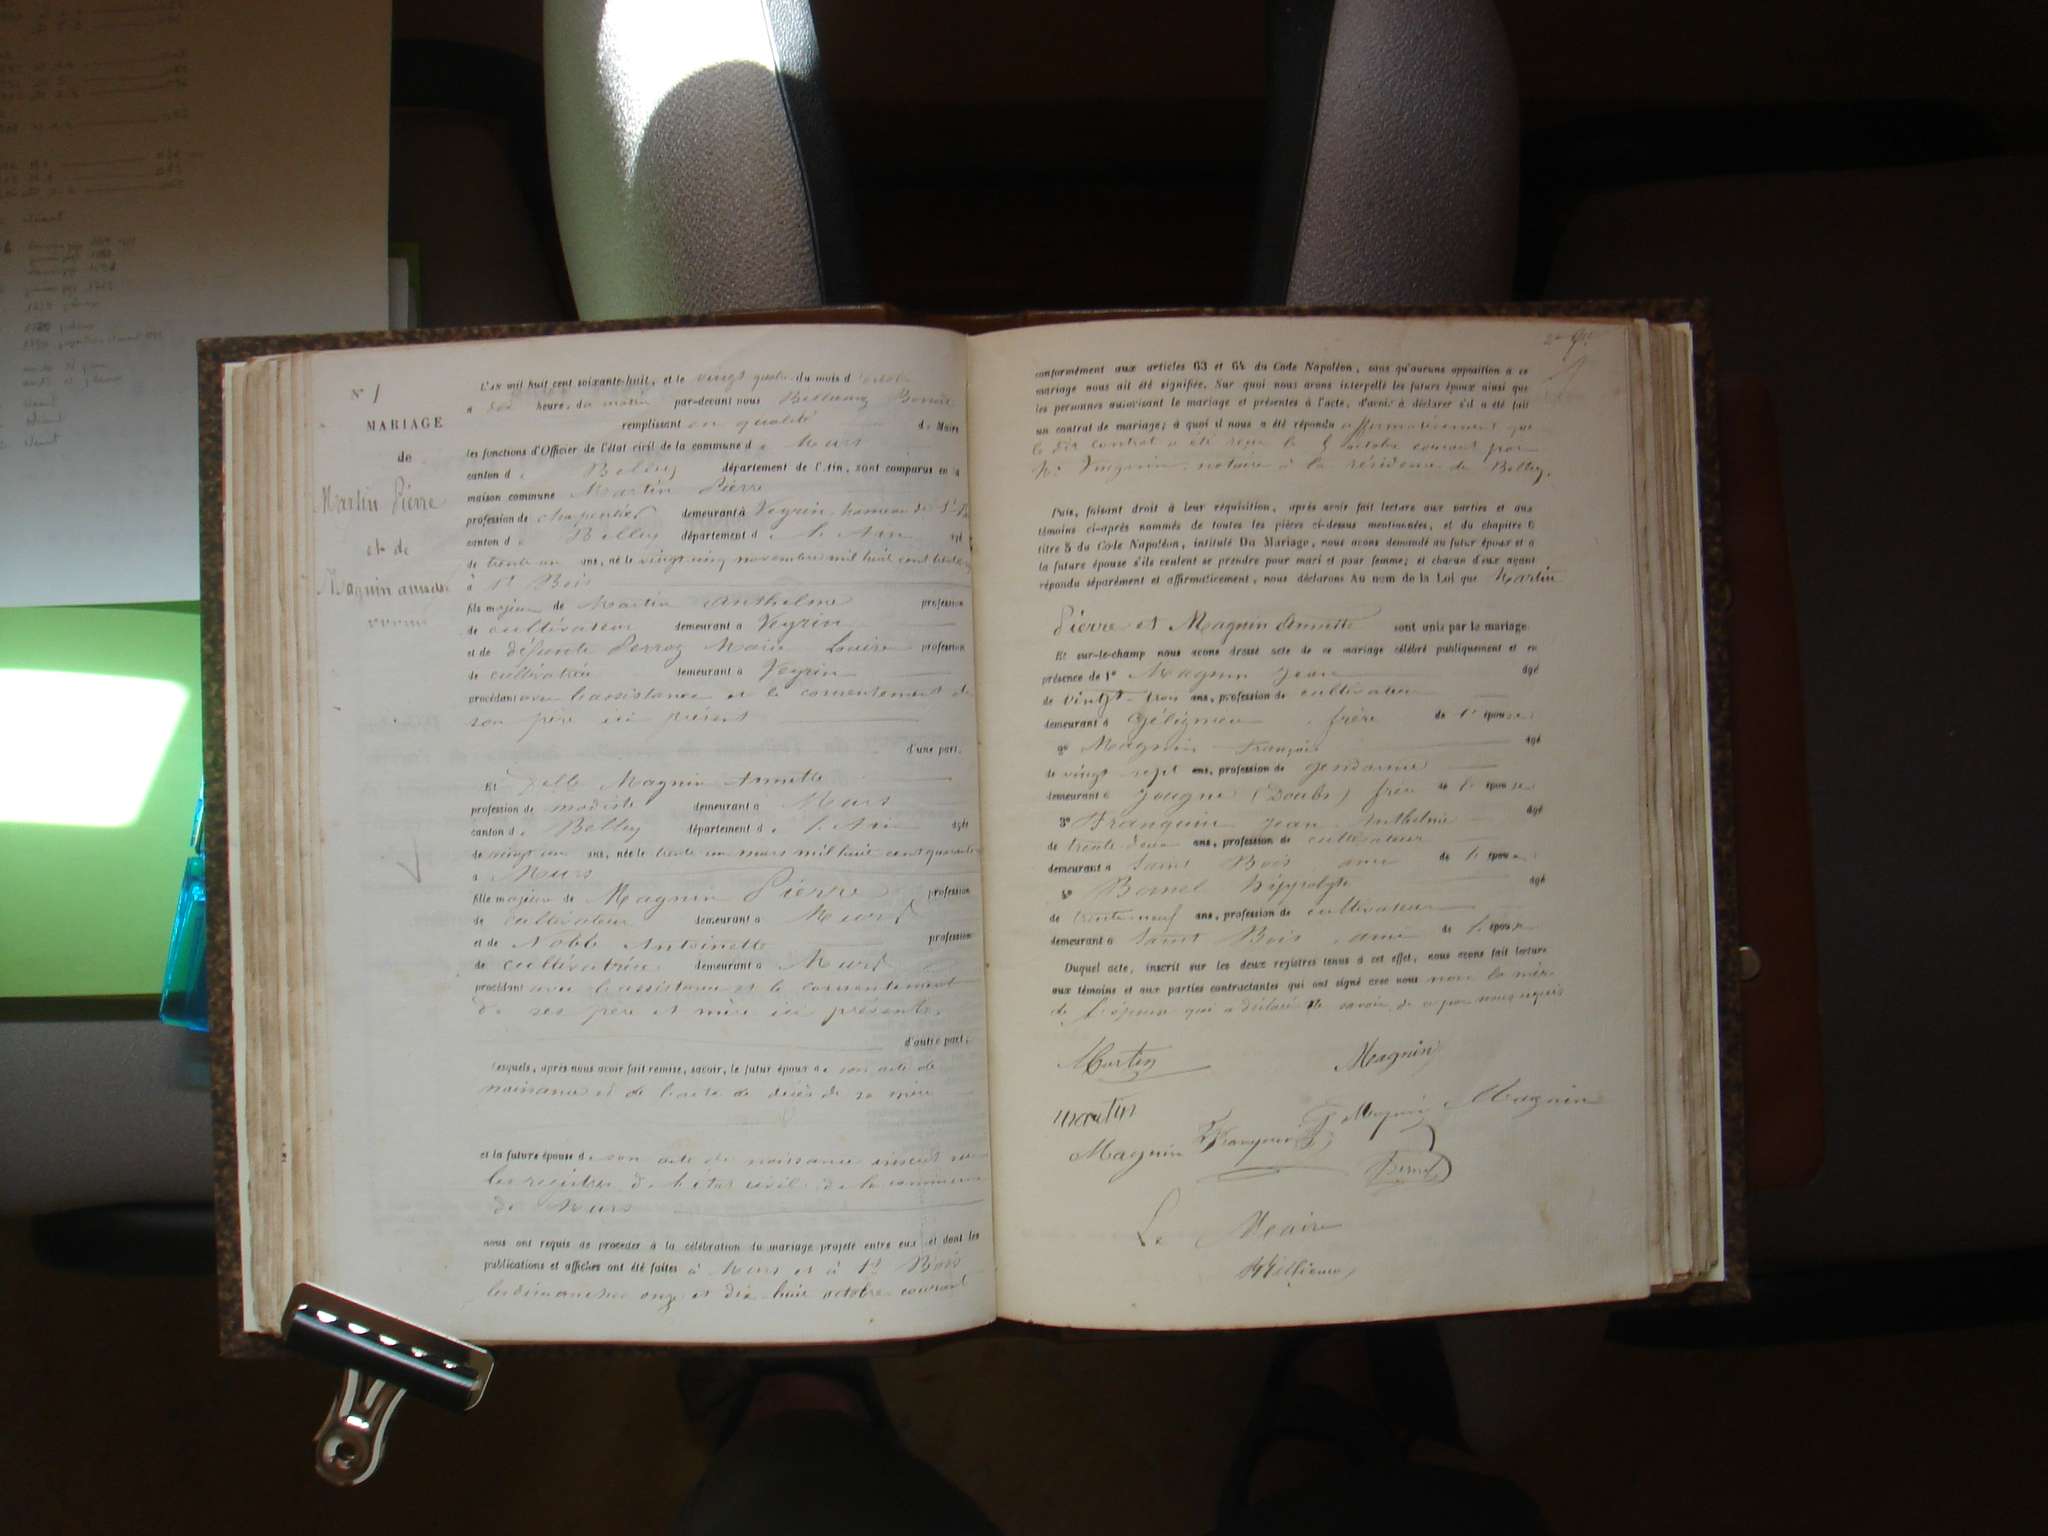 N° 1
MARIAGE
de
Martin Pierre
et de
Magnin annette
L'AN mil huit cent soixante-huit, et le vingt quatre du mois d'octobre
a dix heure, du matin par-devant nous Benoit
remplissant en qualité de Maire
les fonctions d'Officier de l'état civil de la commune de Murs
canton de Belley département de l'Ain, sont comparus en la
maison commune Martin Pierre
profession de charpentier demeurant à Veyrin hameau de St
canton de Belley département de l'Ain agé
de trente un ans, né le vingt cinq novembre mil huit cent trente
à St Bois
fils majeur de Martin Anthelme profession
de cultivateur demeurant a Veyrin
et de défunte Perroz Marie Louise profession
de cultivatrice demeurant à Veyrin
procédant avec l'assistance et le consentement de
son père ici présent
d'une part.
Et Delle Magnin Annette
profession de modiste demeurant a Murs
canton de Belley département de l'Ain agée
de vingt un ans, née le trente un mars mil huit cent quarante
a Murs
fille majeure de Magnin Pierre profession
de cultivateur demeurant a Murs
et de Antoinette profession
de cultivatrice demeurant a Murs
procédant avec l'assistance et le consentement
de ses père et mère ici présents.
d'autre part;
Lesquels, après nous avoir fait remise, savoir, le futur époux de son acte de
naissance et de l'acte de décès de sa mère
et la future épouse de son acte de naissance inscrit sur
les registres de l'état civil de la commune
de Murs
nous ont requis de procéder à la célébration du mariage projeté entre eux et dont les
publications et affiches ont été faites à Murs et à St Bois
les dimanches onze et dix huit octobre courant
conformément aux articles 63 et 64 du Code Napoléon, sans qu'aucune opposition à ce
mariage nous ait été signifiée. Sur quoi nous avons interpellé les futurs époux ainsi que
les personnes autorisant le mariage et présentes à l'acte, d'avoir à déclarer s'il a été fait
un contrat de mariage; à quoi il nous a été répondu affirmativement que
le dit contrat a été reçu le octobre courant par
Mr notaire à la résidence de Belley.
Puis, faisant droit à leur réquisition, après avoir fait lecture aux parties et aux
témoins ci-après nommés de toutes les pièces ci-dessus mentionnées, et du chapitre 6
titre 5 du Code Napoléon, intitulé Du Mariage, nous avons demandé au futur époux et a
la future épouse s'ils veulent se prendre pour mari et pour femme; et chacun d'eux ayant
répondu séparément et affirmativement, nous déclarons Au nom de la Loi que Martin
Pierre et Magnin Annette sont unis par le mariage.
Et sur-le-champ nous avons dressé acte de ce mariage célébré publiquement et en
présence de 1° Magnin Jean agé
de vingt-trois ans, profession de cultivateur
demeurant a Gélignieu frère de l'épouse
2° Magnin François agé
de vingt sept ans, profession de gendarme
demeurant a Jougne (Doubs) frère de l'épouse
3° Franquin Jean Anthelme agé
de trente deux ans, profession de cultivateur
demeurant a Saint Bois ami de l'époux
4° Bornel Hippolyte agé
de trente neuf ans, profession de cultivateur
demeurant a Saint Bois ami de l'époux
Duquel acte, inscrit sur les deux registres tenus à cet effet, nous avons fait lecture
aux témoins et aux parties contractantes qui ont signé avec nous non la mère
de l'épouse qui a déclaré ne savoir de ce par nous requis
Martin Magnin
martin
Magnin Franquin Magnin Magnin
Bornel
Le Maire